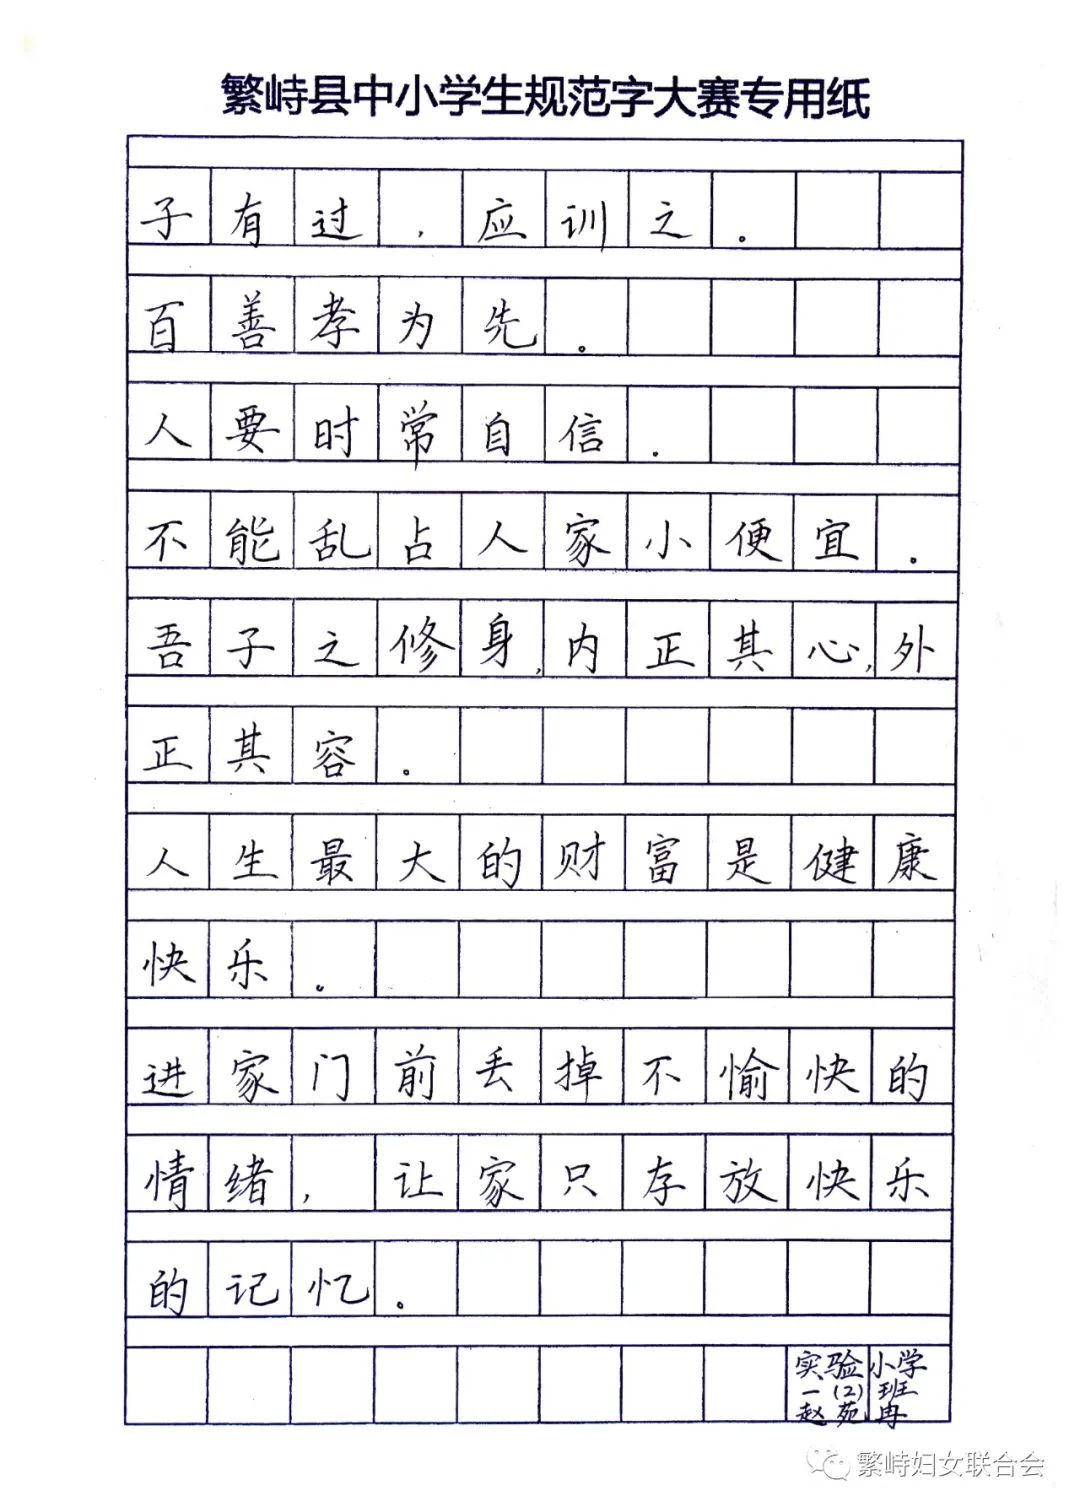 繁峙县中小学生规范字大赛专用纸
子有过，应训之。
百善孝为先。
人要时常自信。
不能乱占人家小便宜。
吾子之修身，内正其心，外
正其容。
人生最大的财富是健康
快乐。
进家门前丢掉不愉快的
情绪，让家只存放快乐
的记忆。
实验小学
一(2)班
赵苑冉
繁峙妇女联合会